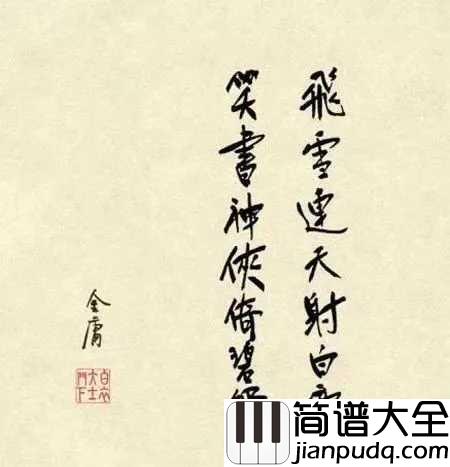 飛雪連天射白
笑書神俠倚碧
金庸
简谱大全
www.jianpudq.com